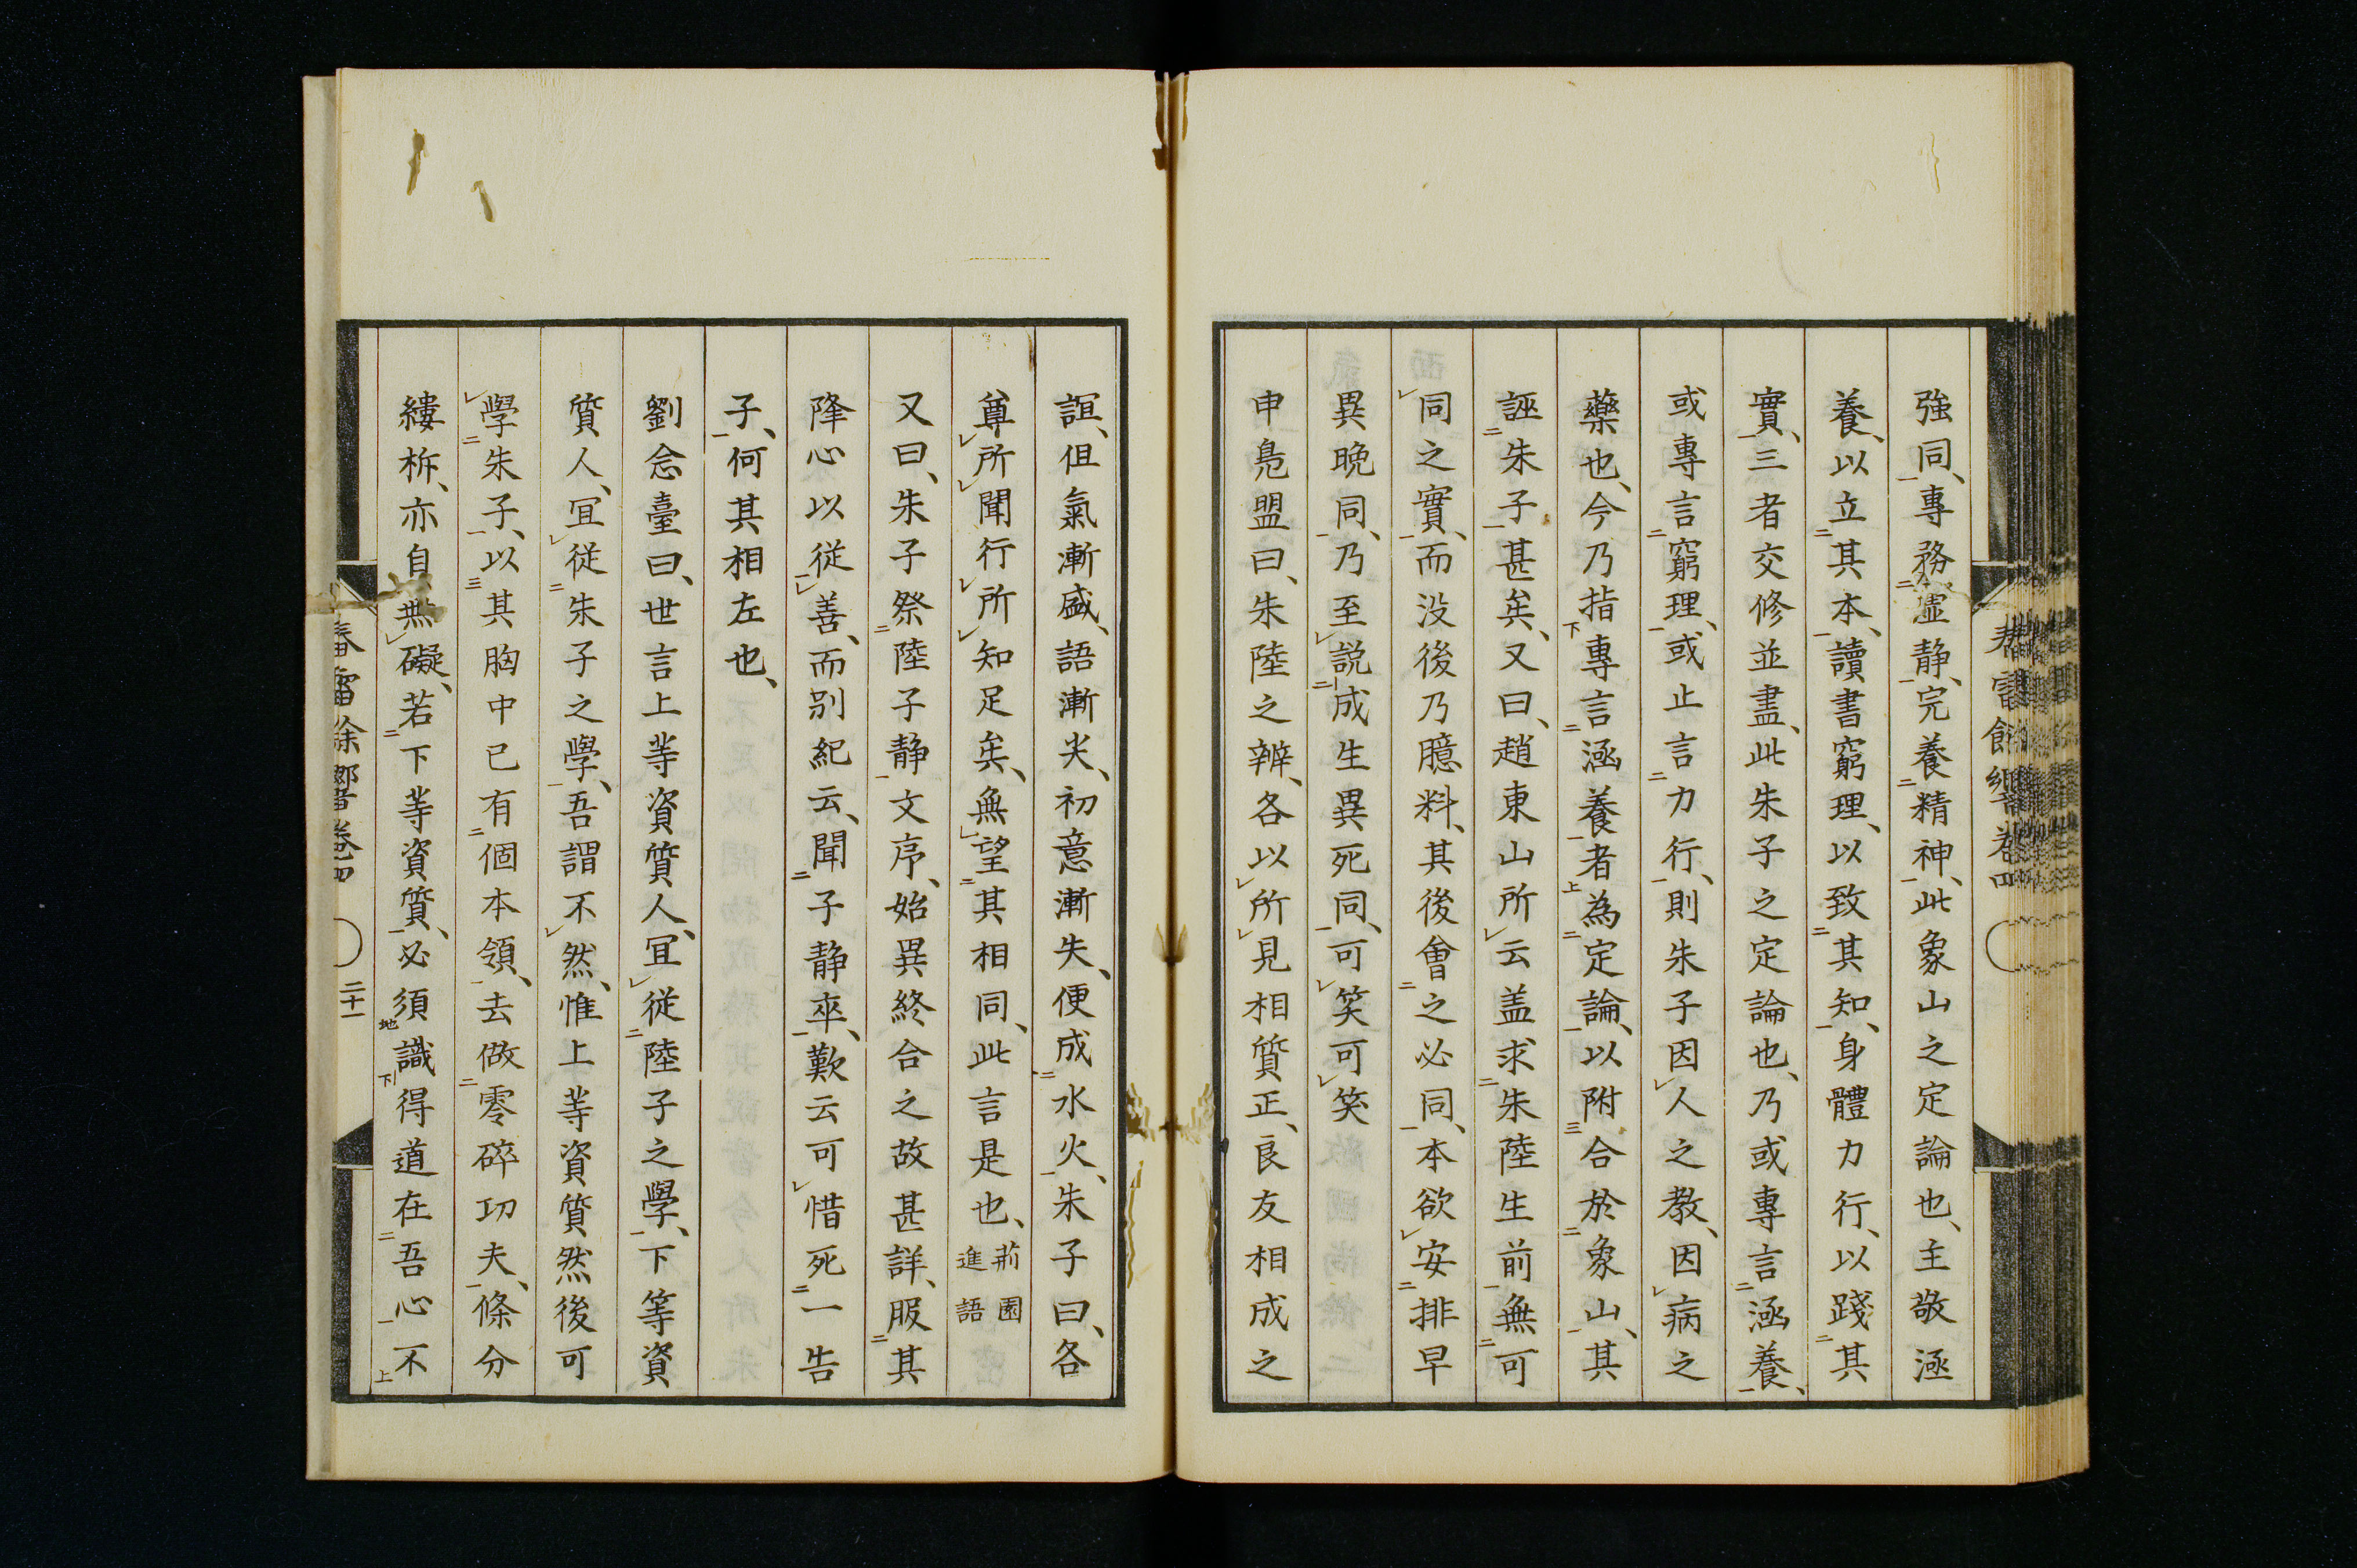 強同、専務虚静、完養精神、此象山之定論也、主敬涵
養、以立其本、讀書窮理、以致其知、身體力行、以踐其
實、三者交修並盡、此朱子之定論也、乃或專言涵養、
或專言窮理、或止言力行、則朱子因人之教、因病之
藥也、今乃指專言涵養者為定論、以附合於象山、其
誣朱子甚矣、又曰、趙東山所云盖求朱陸生前無可
同之實、而没後乃臆料、其後會之必同、本欲安排早
異晩同、乃至説成生異死同、可笑可笑
申鳧盟曰、朱陸之辨、各以所見相質正、良友相成之
誼、但氣漸盛、語漸尖、初意漸失、便成水火、朱子曰、各
尊所聞行所知足矣、無望其相同、此言是也、荊園進語
又曰、朱子祭陸子静文序、始異終合之故甚詳、服其
降心以従善、而別紀云、聞子静卒、歎云可惜死一告
子、何其相左也、
劉念臺曰、世言上等資質人、宜従陸子之學、下等資
質人、宜従朱子之學、吾謂不然、惟上等資質然後可
學朱子、以其胸中已有個本領、去做零碎功夫、條分
縷柝、亦自無礙、若下等資質、必須識得道在吾心不
春雷餘響卷四 二十一